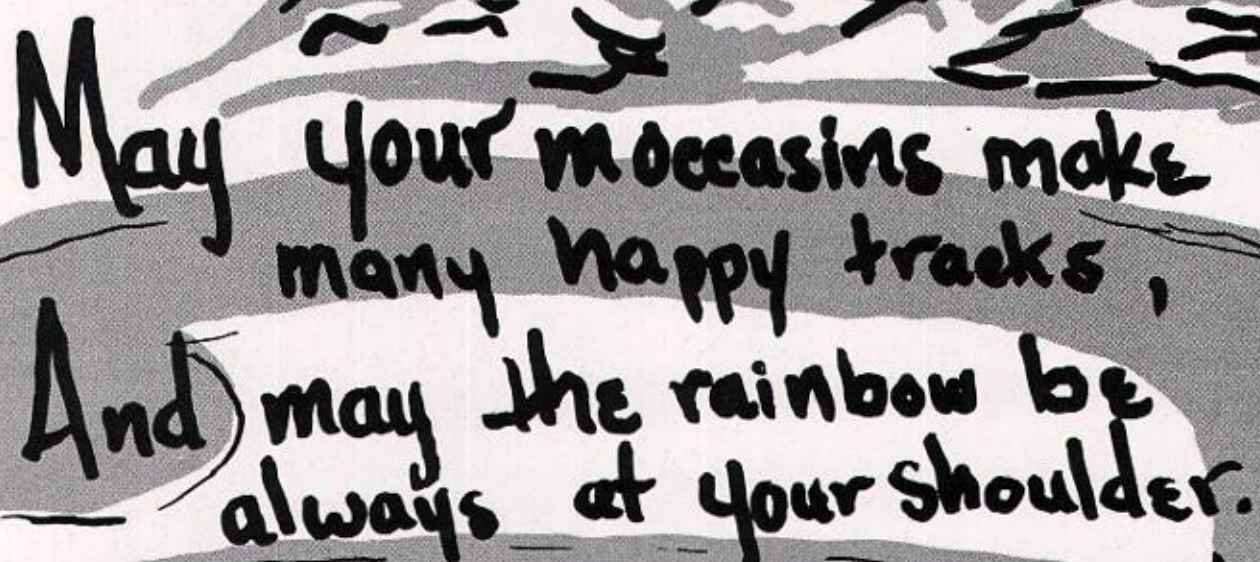 May your moccasins make
many happy tracks,
And may the rainbow be
always at your shoulder.